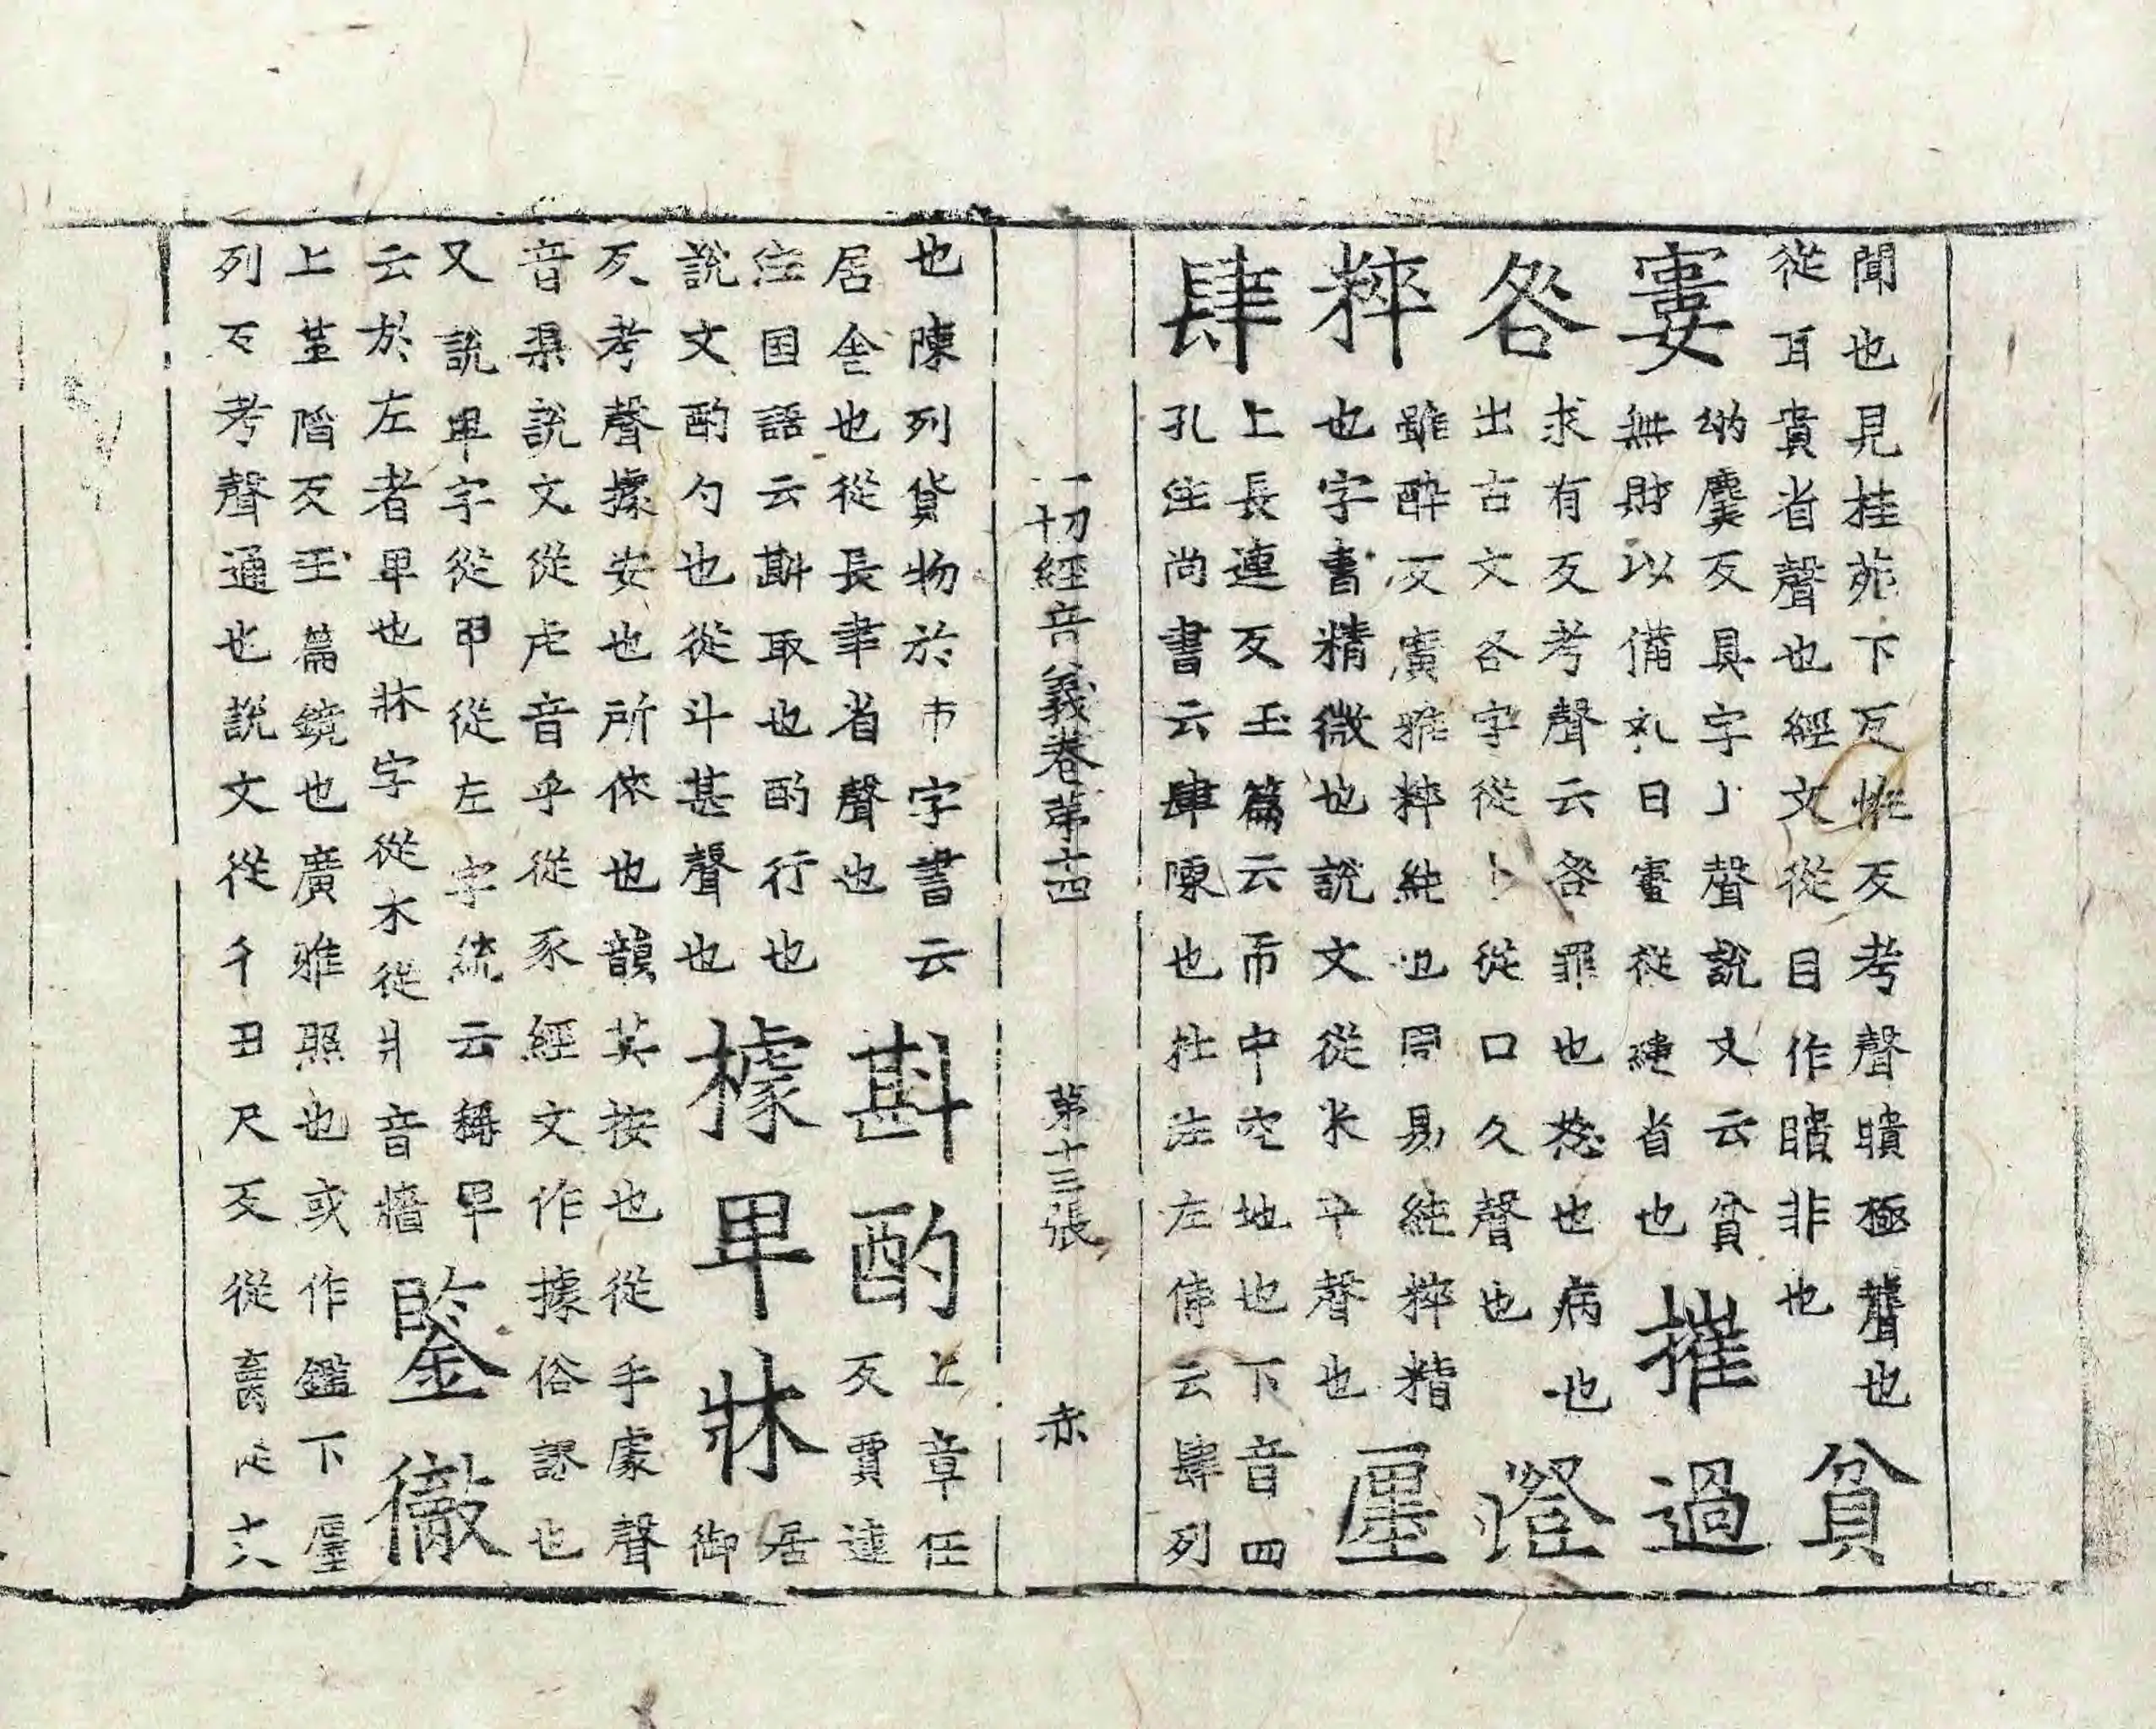 聞也見桂苑下瓦恠反考聲聵極聾也
從耳貴省聲也經文從目作瞶非也
貧
窶
納麌反具字丄聲說文云貧
無財以備礼曰窶從婁省也
摧過
咎
求有反考聲云咎罪也愆也病也
出古文各字從卜從口久聲也
澄
粹
雖醉反廣雅粹純也周易純粹精
也字書精微也說文從米卒聲也
㕓
肆
上長連反玉篇云市中空地也下音四
孔注尚書云肆陳也杜注左傳云肆列
一切經音義卷第十四 第十三張 赤
也陳列貨物於市字書云
居舍也從長聿省聲也
斟酌
上章任
反賈逵
注国語云斟取也酌行也
說文酌勺也從斗甚聲也
據卑牀
居
御
反考聲據安也所依也韻英按也從手豦聲
音渠說文從虍音乎從豕經文作據俗謬也
又說卑字從甲從左字統云稱卑
云於左者卑也牀字從木從爿音墻
鍳徹
上監陷反玉篇鏡也廣雅照也或作鑑下㕓
列反考聲通也說文從彳丑尺反從育從攴